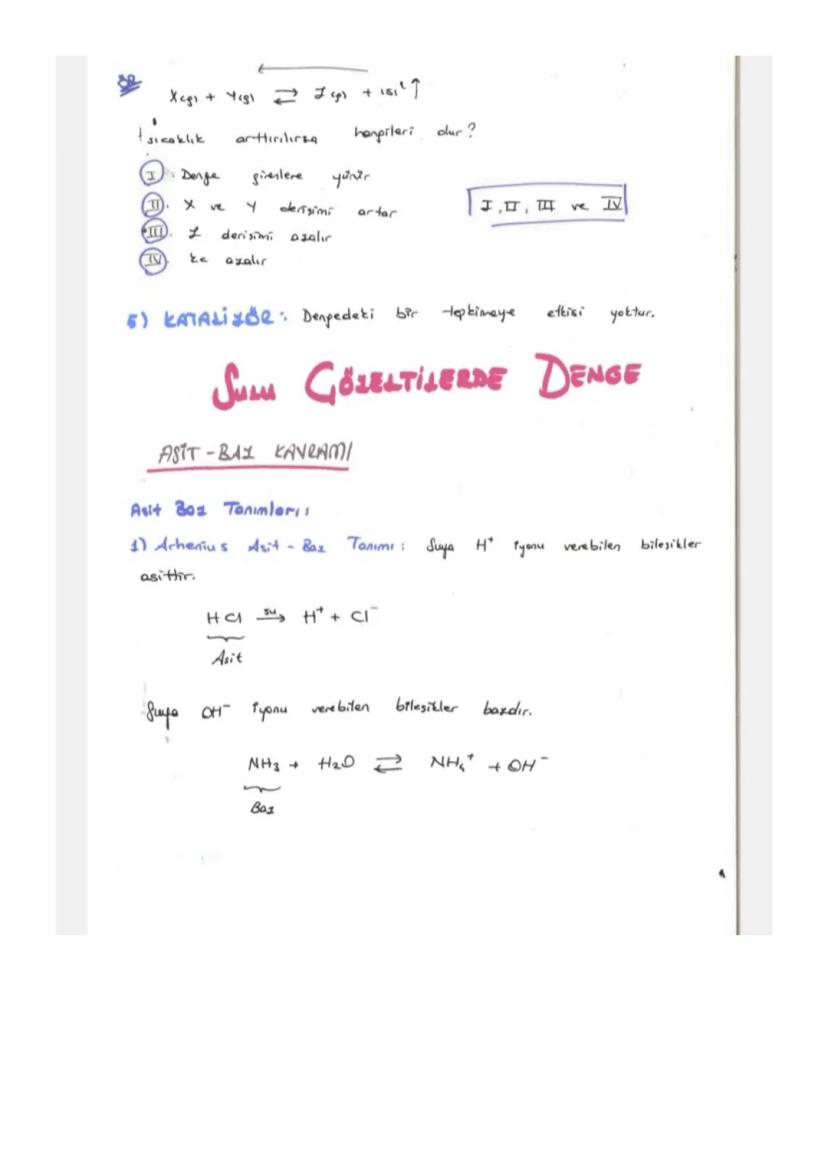 ÖR
X(g) + Y(g) ⇌ Z(g) + ısı ↑
sıcaklık arttırılırsa hangileri olur?
I. Denge girenlere yürür
II. X ve Y derişimi artar
III. Z derişimi azalır
IV. kc azalır
I, II, III ve IV
5) KATALİZÖR: Dengedeki bir tepkimeye etkisi yoktur.
SULU ÇÖZELTİLERDE DENGE
ASİT-BAZ KAVRAMI
Asit Baz Tanımları:
1) Arhenius Asit-Baz Tanımı: Suya H⁺ iyonu verebilen bileşikler
asittir.
HCl su→ H⁺ + Cl⁻
Asit
Suya OH⁻ iyonu verebilen bileşikler bazdır.
NH₃ + H₂O ⇌ NH₄⁺ + OH⁻
Baz